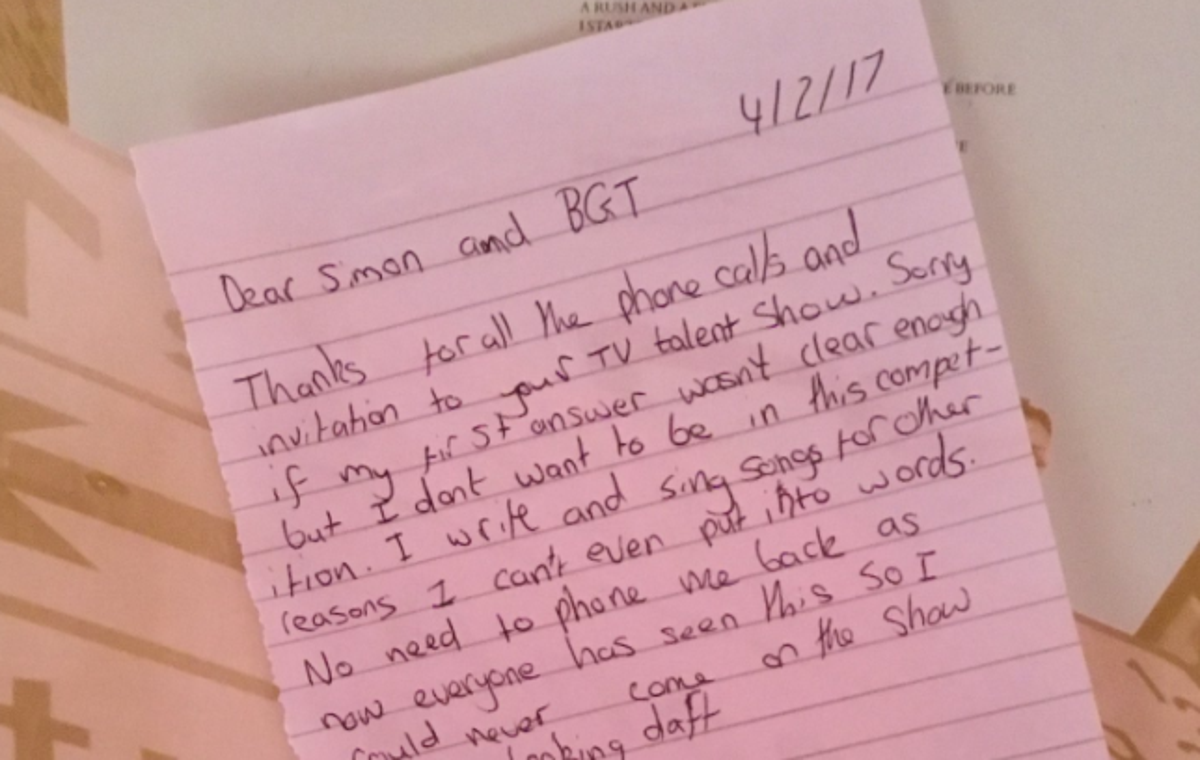 A RUSH AND A
I STAR
BEFORE
4/2/17
Dear Simon and BGT
Thanks for all the phone calls and
invitation to your TV talent show. Sorry
if my first answer wasn't clear enough
but I dont want to be in this compet-
ition. I write and sing songs for other
reasons I can't even put into words.
No need to phone me back as
now everyone has seen this so I
could never come on the show
looking daft